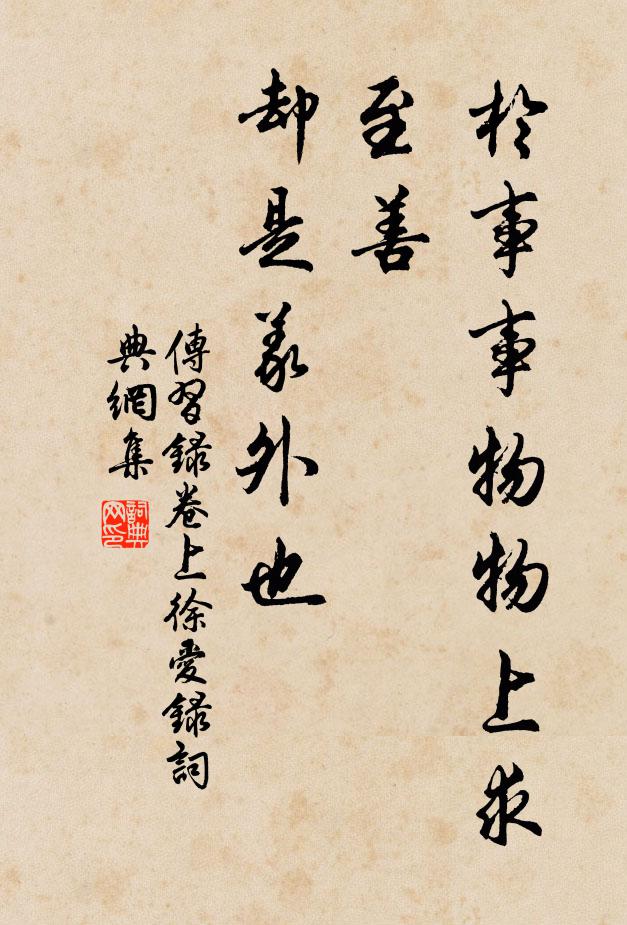 於事事物物上求
至善
却是義外也
傳習録卷上徐愛録詞
典網集
詞典网印